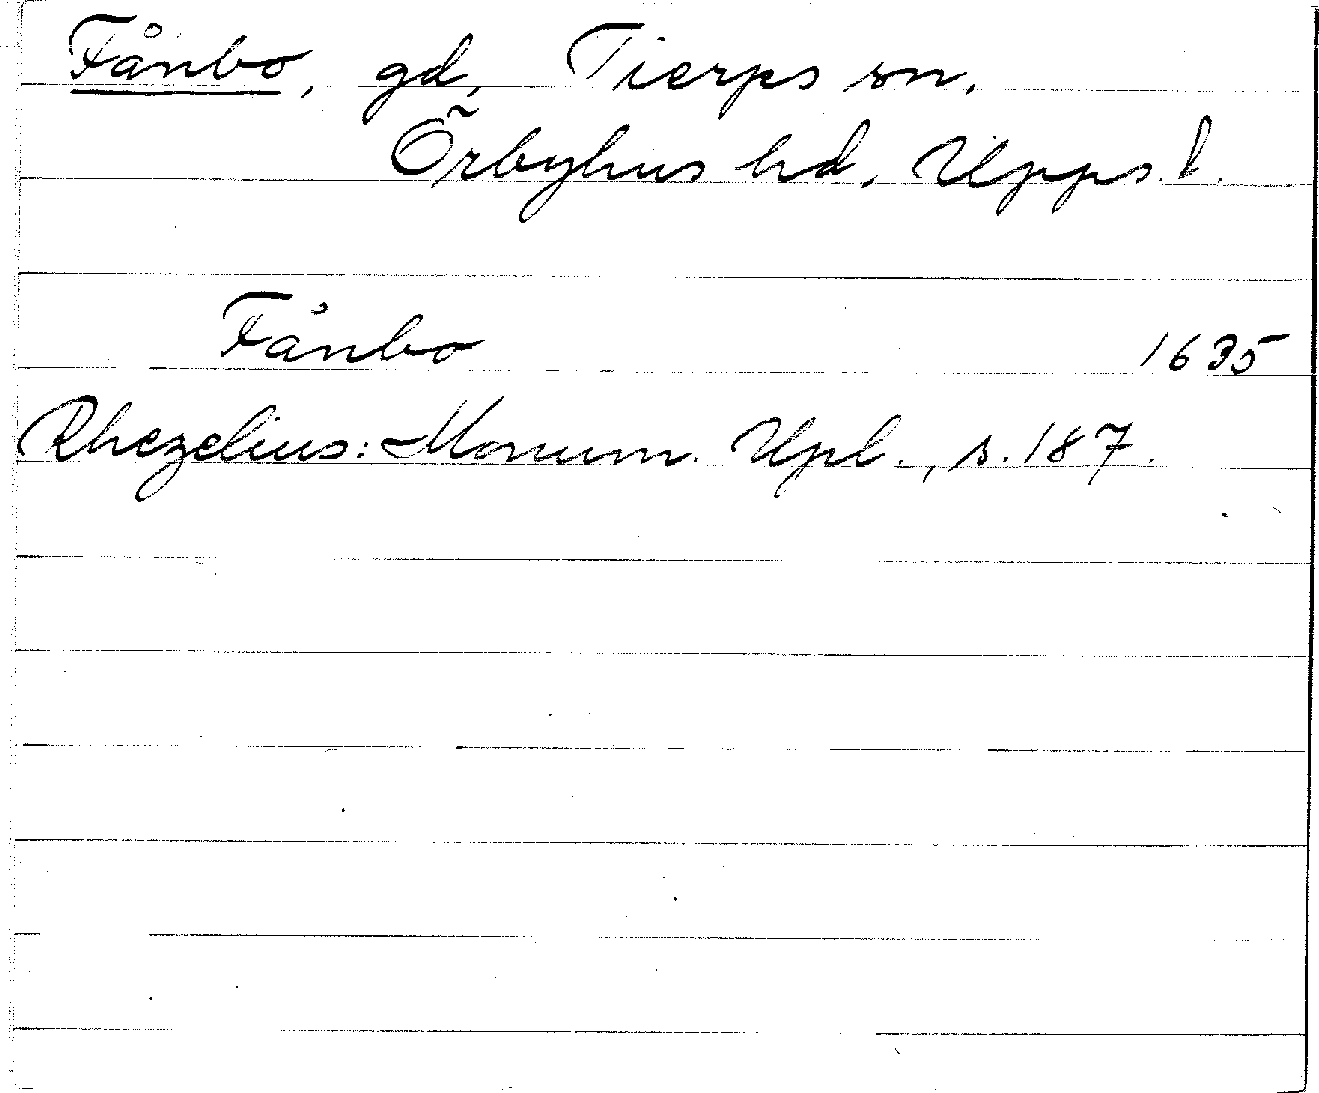 Fånbo, gd, Tierps sn,
Örbyhus hd, Upps. l.
Fånbo 1635
Rhezelius: Monum. Upl., s. 187.